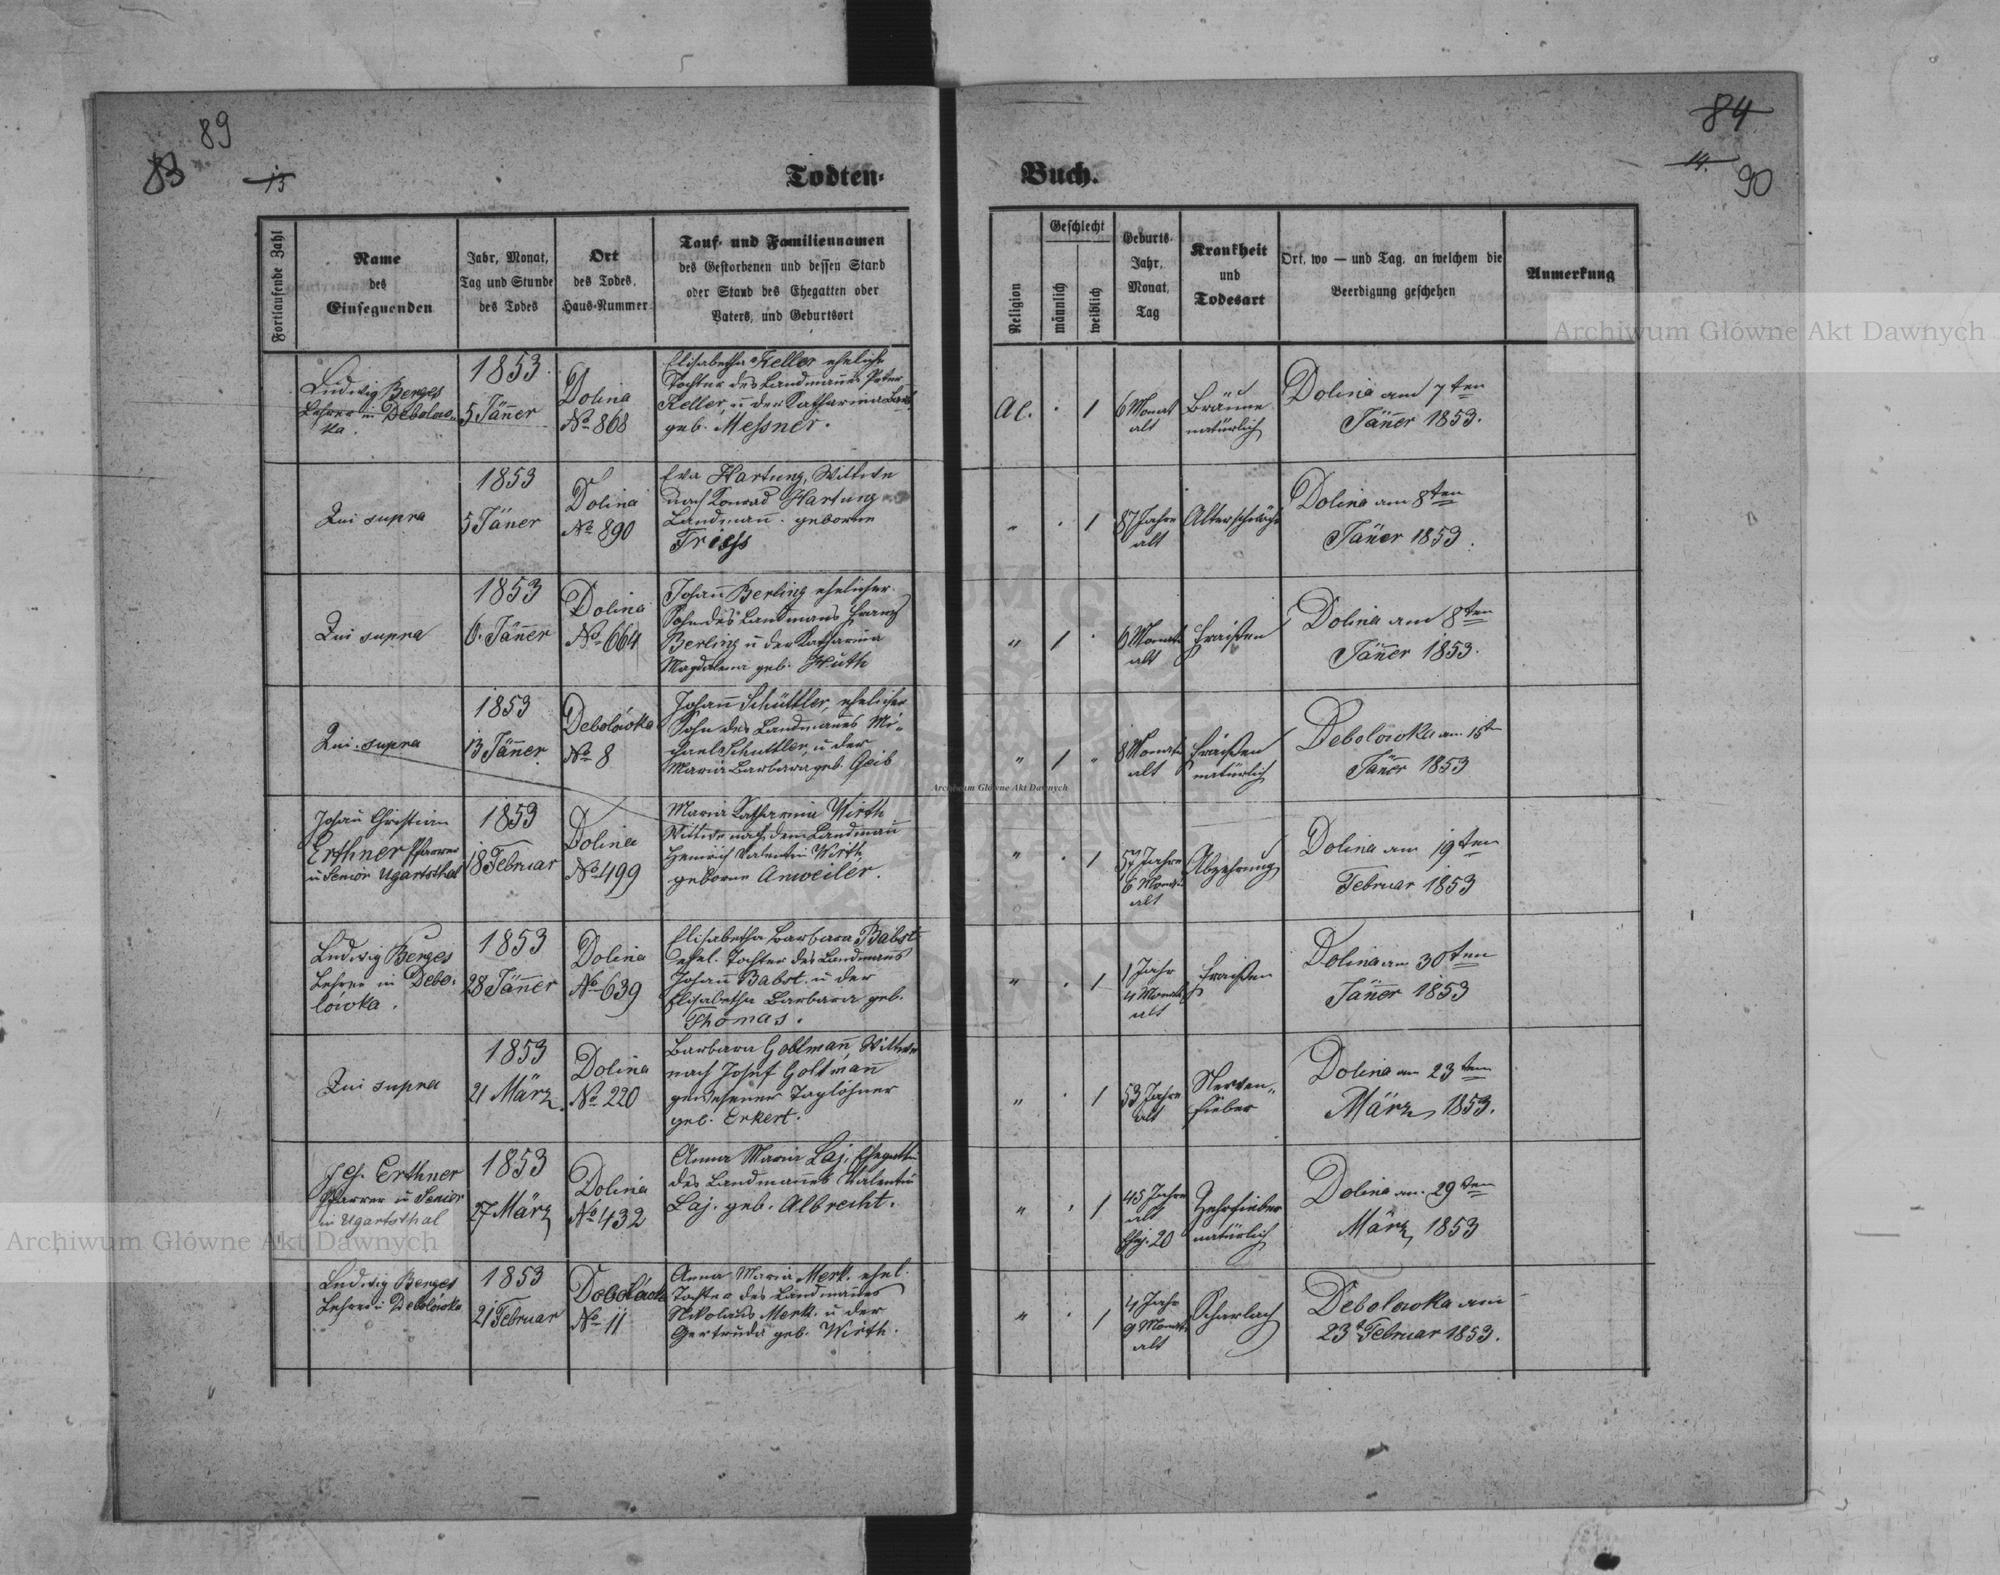 89
83
13
84
14.
90
Todten-
Buch.
Fortlaufende Zahl
Name
des
Einsegnenden
Jahr, Monat,
Tag und Stunde
des Todes
Ort
des Todes,
Haus-Nummer
Tauf- und Familiennamen
des Gestorbenen und dessen Stand
oder Stand des Ehegatten oder
Vaters, und Geburtsort
Religion
Geschlecht
männlich
weiblich
Geburts-
Jahr,
Monat,
Tag
Krankheit
und
Todesart
Ort, wo — und Tag, an welchem die
Beerdigung geschehen
Anmerkung
Ludwig Berges
Lehrer in Debolow-
ka.
1853.
5 Jäner
Dolina
No 868
Elisabetha Keller eheliche
Tochter des Landmañes Peter
Keller, u der Katharina
geb. Messner.
A C. . 1
6 Monat
alt
Bräune
natürlich
Dolina am 7ten
Jäner 1853.
Qui supra
1853
5 Jäner
Dolina
No 890
Eva Hartung, Wittwe
nach Konrad Hartung
Landmañ. geborne
Triess
" . 1
87 Jahre
alt
Altersschwäche
Dolina am 8ten
Jäner 1853.
Qui supra
1853
6. Jäner
Dolina
No 664
Johañ Berling ehelicher
Sohn des Landmans Franz
Berling u der Katharina
Magdalena geb. Huth
" 1 .
6 Monate
alt
Fraißen
Dolina am 8ten
Jäner 1853.
Qui supra
1853
13 Jäner
Debolówka
No 8
Johañ Schüttler, ehelicher
Sohn des Landmañes Mi-
chael Schuttler, u der
Maria Barbara geb. Geib
" 1 "
8 Monate
alt
Fraißen
natürlich
Debolowka am 15t
Jäner 1853
Johañ Christian
Erthner Pfarrer
u Senior Ugartsthal
1853
18 Februar
Dolina
No 499
Maria Katharina Wirth
Wittwe nach dem Landmañ
Heinrich Valentin Wirth,
geborne Anweiler.
" . 1
57 Jahre
6 Monate
alt
Abzehrung
Dolina am 19ten
Februar 1853
Ludwig Berges
Lehrer in Debo-
lówka.
1853
28 Jäner
Dolina
No 639
Elisabetha Barbara Babst
ehel. Tochter des Landmañs
Johañ Babst. u der
Elisabetha Barbara geb.
Thomas.
" . 1
1 Jahr
4 Monate
alt
Fraißen
Dolina am 30ten
Jäner 1853
Qui supra
1853
21 März
Dolina
No 220
Barbara Goltmañ, Wittwe
nach Josef Goltmañ
gewesener Taglöhner
geb. Erkert.
" . 1
53 Jahre
alt
Nerven-
fieber
Dolina am 23ten
März 1853.
J Ch. Erthner
Pfarrer u Senior
in Ugartsthal
1853
27 März
Dolina
No 432
Anna Maria Laj, Ehegattin
des Landmañes Valentin
Laj. geb. Albrecht.
" . 1
45 Jahre
alt
Ehej. 20
Zehrfieber
natürlich
Dolina am 29ten
März 1853
Ludwig Berges
Lehrer i Debolówka
1853
21 Februar
Debolówka
No 11
Anna Maria Merk. ehel.
Tochter des Landmañes
Nikolaus Merk. u der
Gertruda geb. Wirth.
" . 1
4 Jahr
9 Monate
alt
Scharlach
Debolowka am
23t Februar 1853.
Archiwum Główne Akt Dawnych
Archiwum Główne Akt Dawnych
Archiwum Główne Akt Dawnych